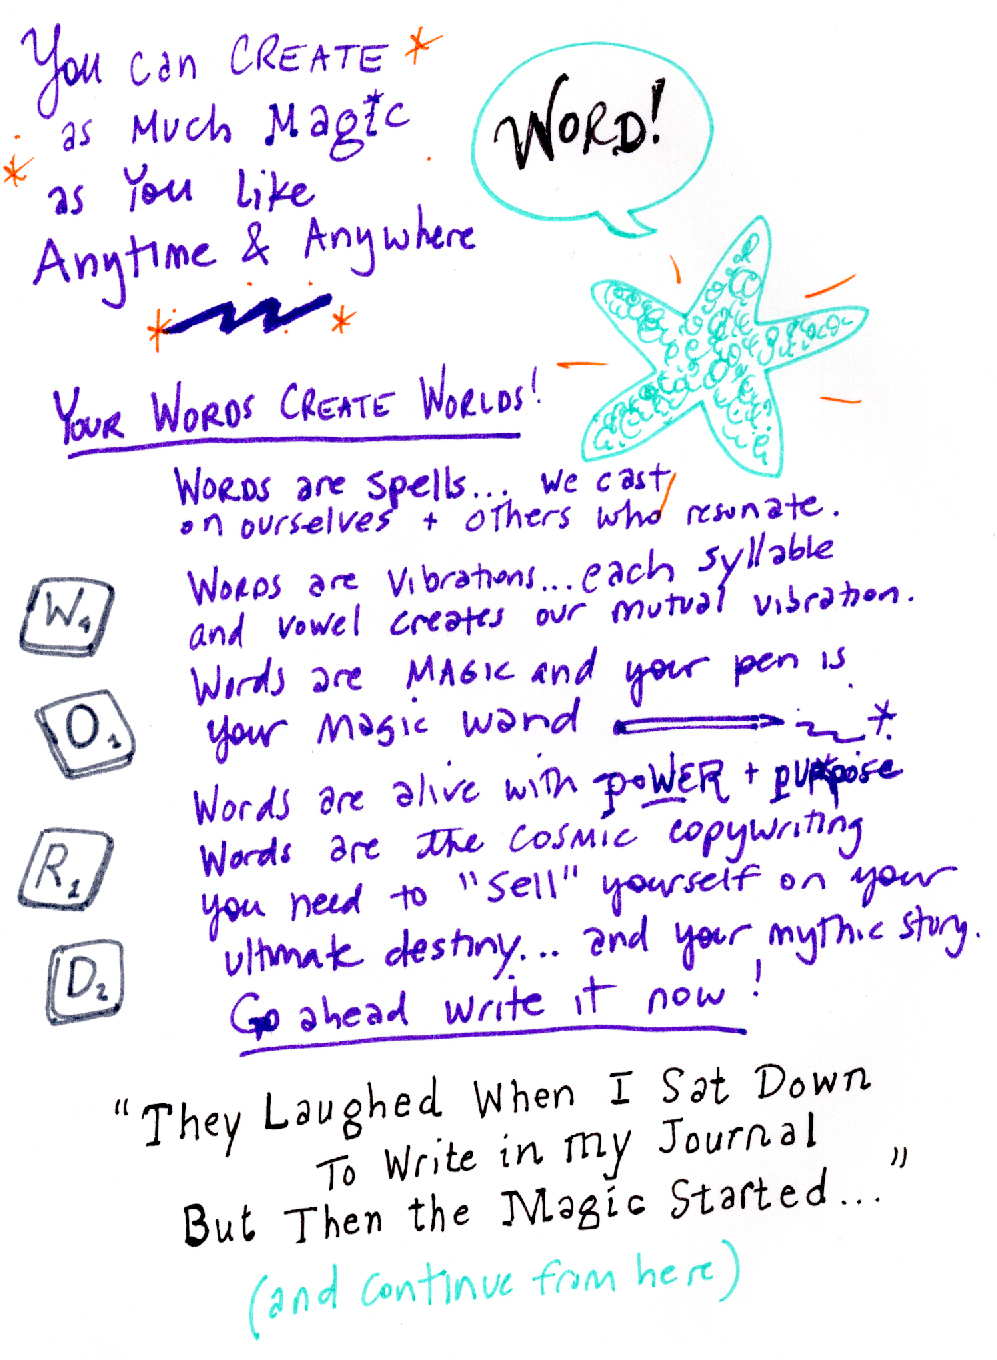 You can CREATE
as Much Magic
as You like
Anytime & Anywhere
WORD!
YOUR WORDS CREATE WORLDS!
WORDS are spells... we cast
on ourselves + others who resonate.
WORDS are Vibrations... each syllable
and vowel creates our mutual vibration.
Words are MAGIC and your pen is
your Magic wand
Words are alive with poWER + purpose
Words are the COSMIC copywriting
you need to "sell" yourself on your
ultimate destiny... and your mythic story.
Go ahead write it now!
W4
O1
R1
D2
"They Laughed When I Sat Down
To Write in my Journal
But Then the Magic Started..."
(and continue from here)